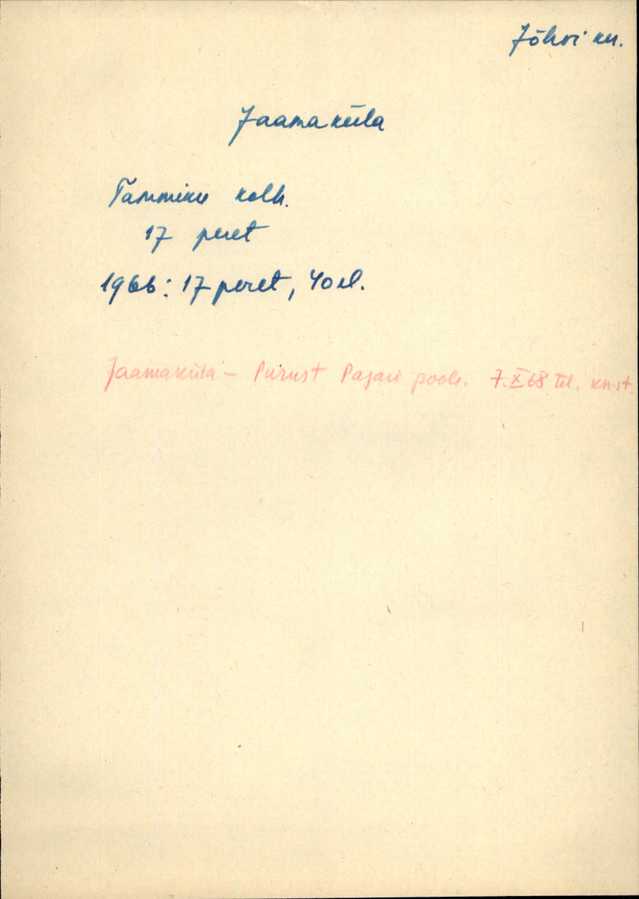 Jõhvi kn.
Jaamaküla
Tammiku kolh.
17 peret
1966: 17 peret, 40 el.
Jaamaküla – Purust Pajari poole. 7.X68 tel. kn-st